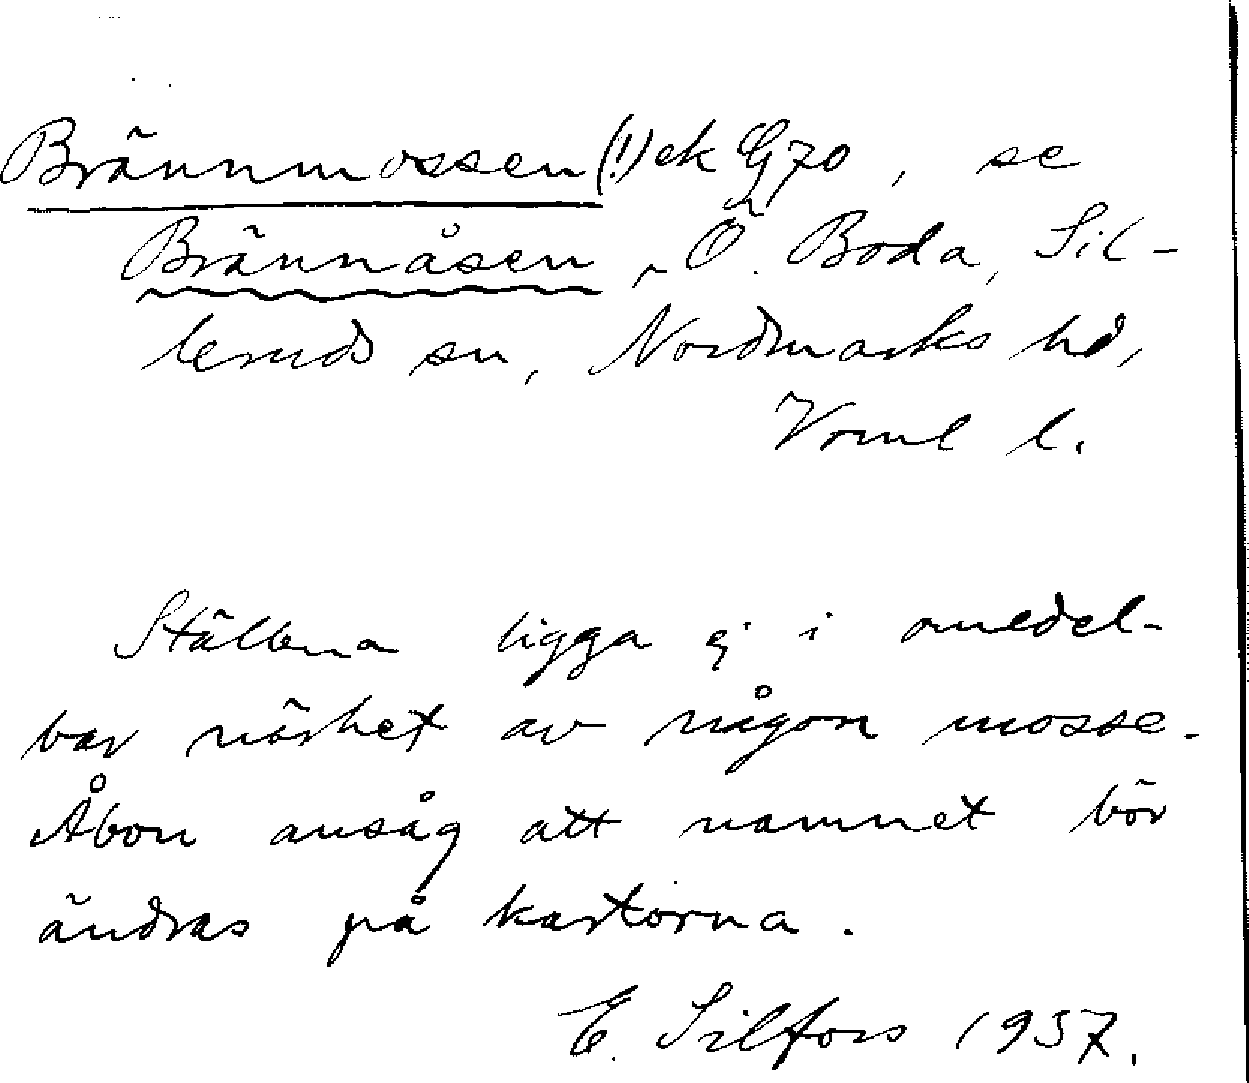 Brännmossen (!) ek G70, se
Brännåsen, Ö. Boda, Sil-
leruds sn, Nordmarks hd,
Vrml l.
Ställena ligga ej i omedel-
bar närhet av någon mosse.
Åbon ansåg att namnet bör
ändras på kartorna.
E. Silfors 1937.